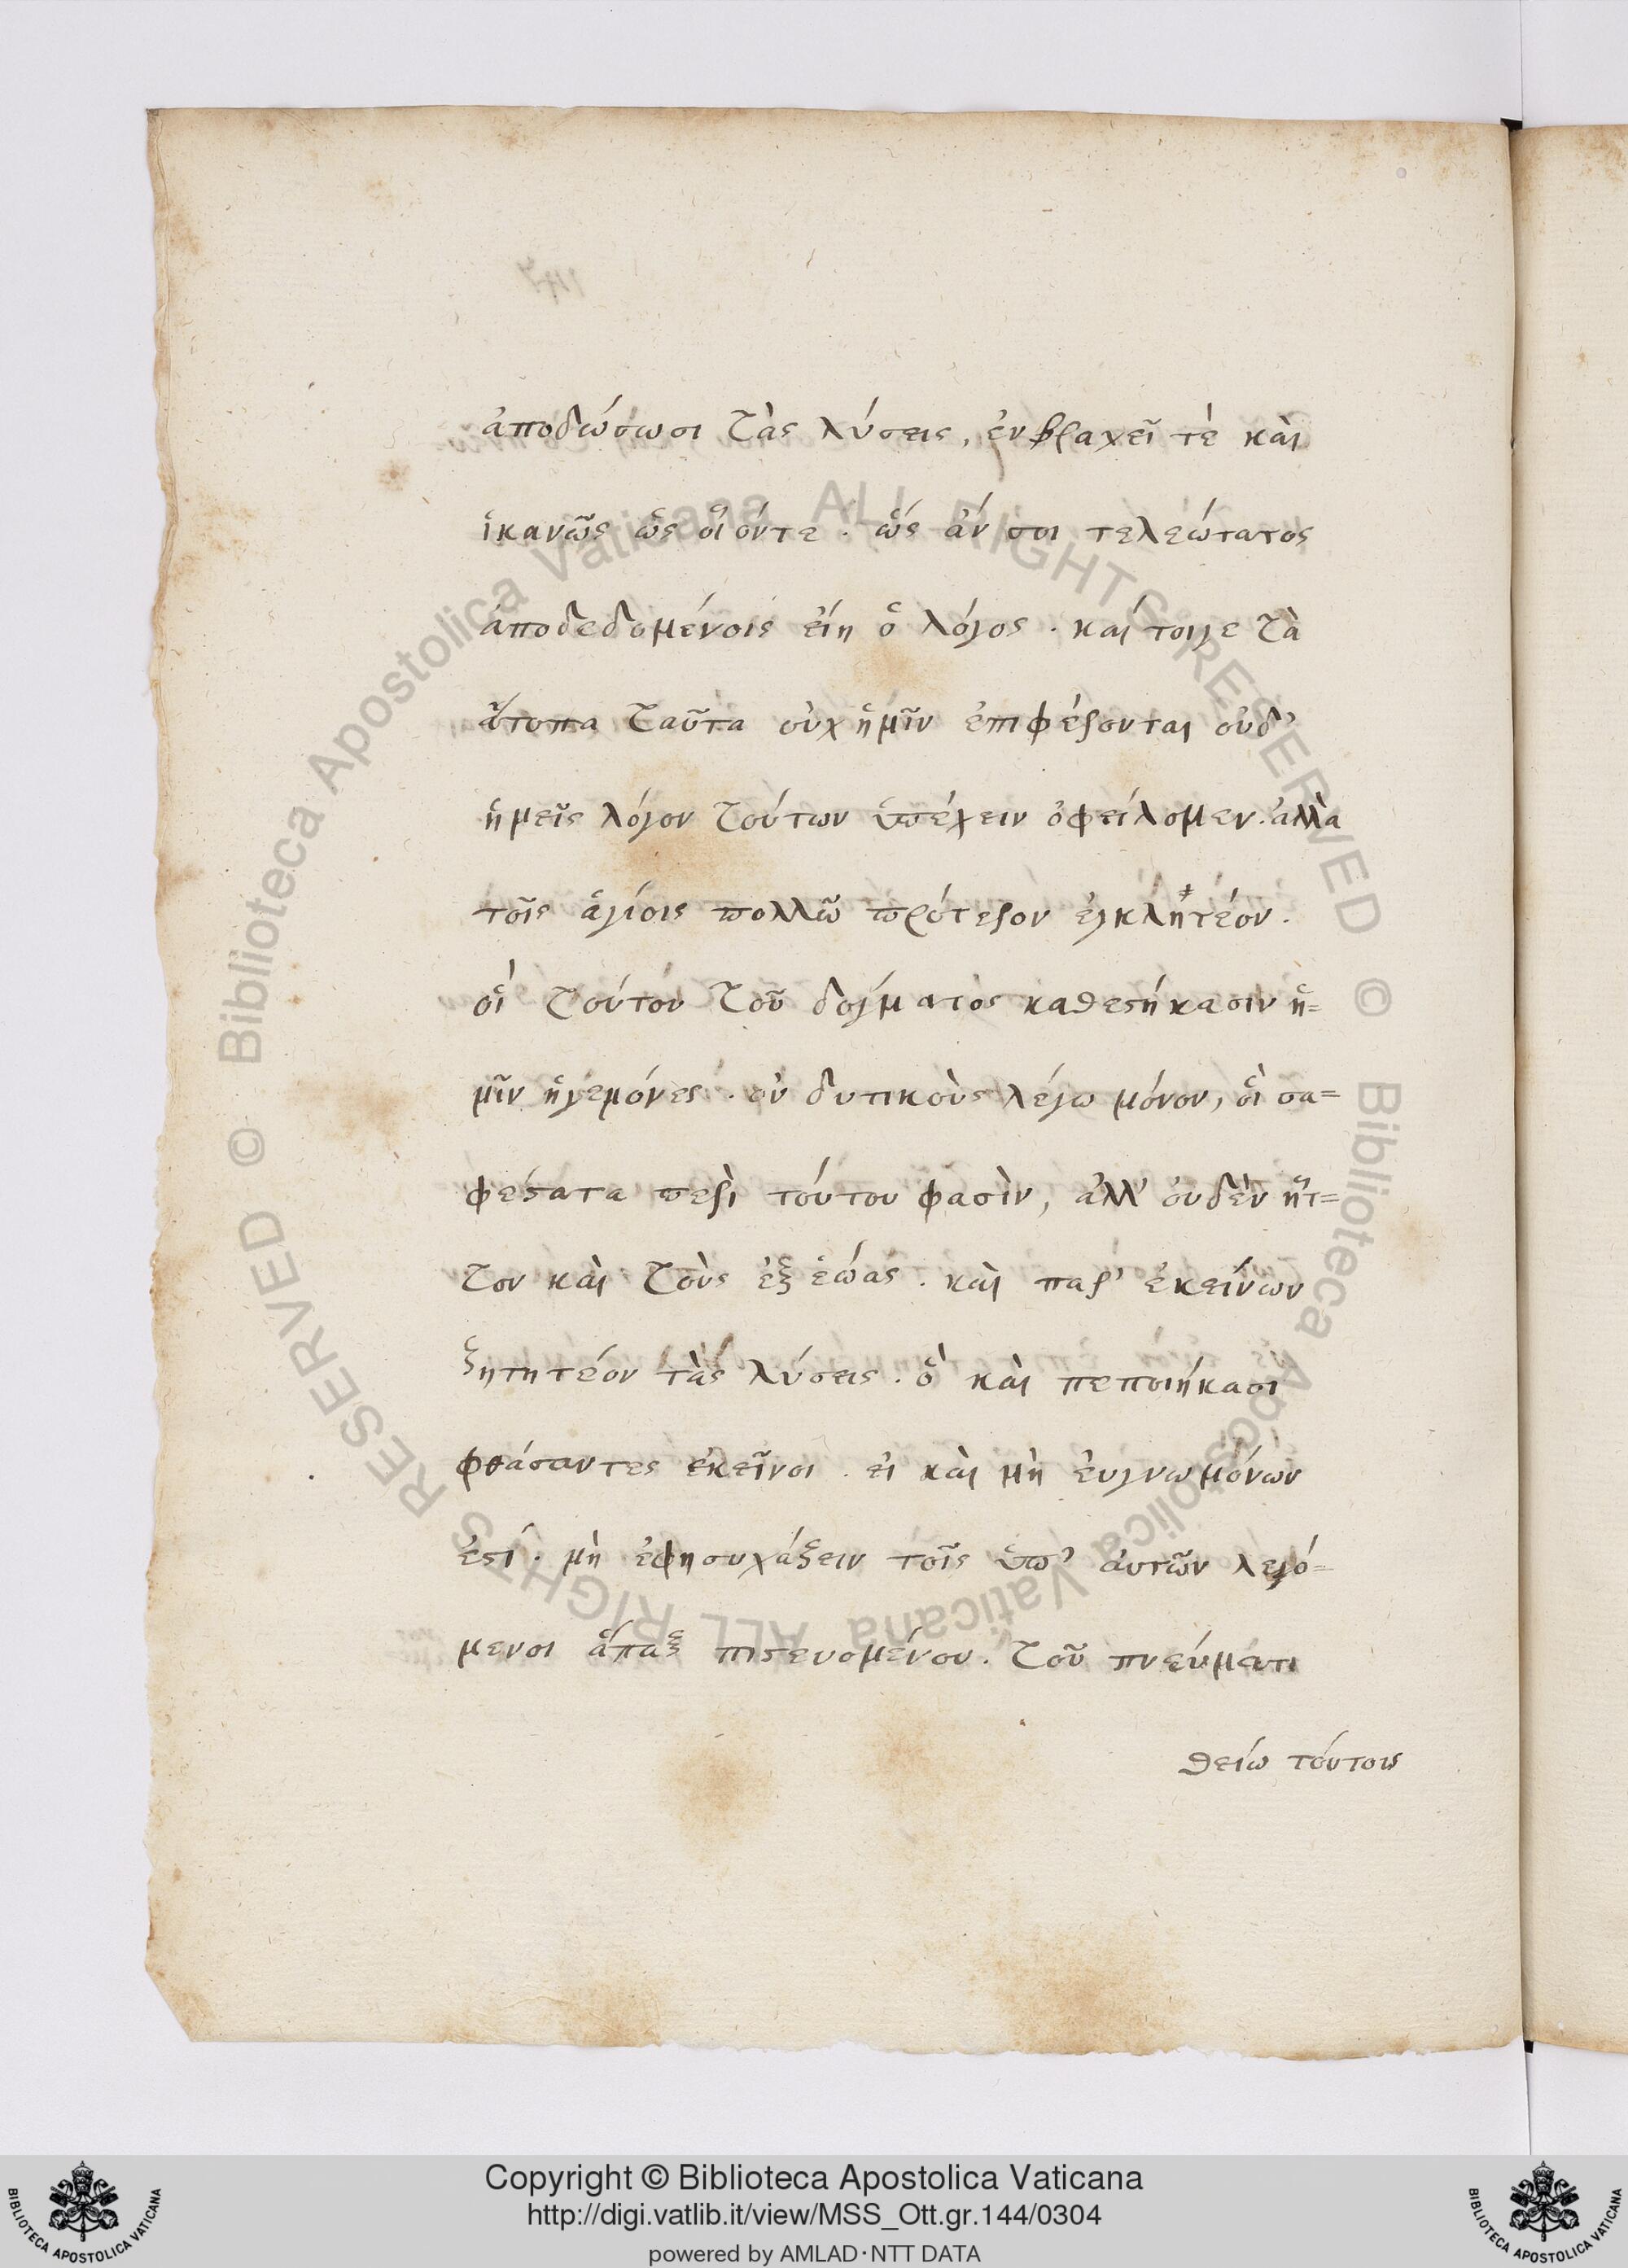 ἀποδώσωσι τὰς λύσεις, ἐν βραχεῖ τὲ καὶ
ἱκανῶς ὡς οἷόντε. ὡς ἄν σοι τελεώτατος
ἀποδεδομένοις εἴη ὁ λόγος. καί τοιγε τὰ
ἄτοπα ταῦτα οὐχ ἡμῖν ἐπιφέρονται οὐδ'
ἡμεῖς λόγον τούτων ὑπέχειν ὀφείλομεν. ἀλλὰ
τοῖς ἁγίοις πολλῶ πρότερον ἐγκλητέον.
οἳ τούτου τοῦ δόγματος καθεστήκασιν ἡ=
μῖν ἡγεμόνες. οὐ δυτικοὺς λέγω μόνον, οἳ σα=
φέστατα περὶ τούτου φασὶν, ἀλλ' οὐδὲν ἧτ=
τον καὶ τοὺς ἐξ ἑώας. καὶ παρ' ἐκείνων
ζητητέον τὰς λύσεις. ὃ καὶ πεποιήκασι
φθάσαντες ἐκεῖνοι. εἰ καὶ μὴ εὐγνωμόνων
ἐστί. μὴ ἐφησυχάζειν τοῖς ὑπ' αὐτῶν λεγό=
μενοι ἅπαξ πιστευομένου. τοῦ πνεύματι
θείω τούτοις
Biblioteca Apostolica Vaticana ALL RIGHTS RESERVED ©
Biblioteca Apostolica Vaticana ALL RIGHTS RESERVED ©
Copyright © Biblioteca Apostolica Vaticana
http://digi.vatlib.it/view/MSS_Ott.gr.144/0304
powered by AMLAD·NTT DATA
BIBLIOTECA APOSTOLICA VATICANA
BIBLIOTECA APOSTOLICA VATICANA